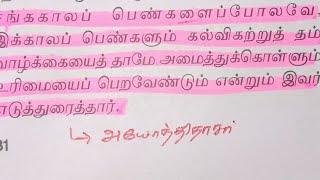 சங்ககாலப் பெண்களைப்போலவே,
இக்காலப் பெண்களும் கல்விகற்றுத் தம்
வாழ்க்கையைத் தாமே அமைத்துக்கொள்ளும்
உரிமையைப் பெறவேண்டும் என்றும் இவர்
எடுத்துரைத்தார்.
↳ அயோத்திதாசர்
31